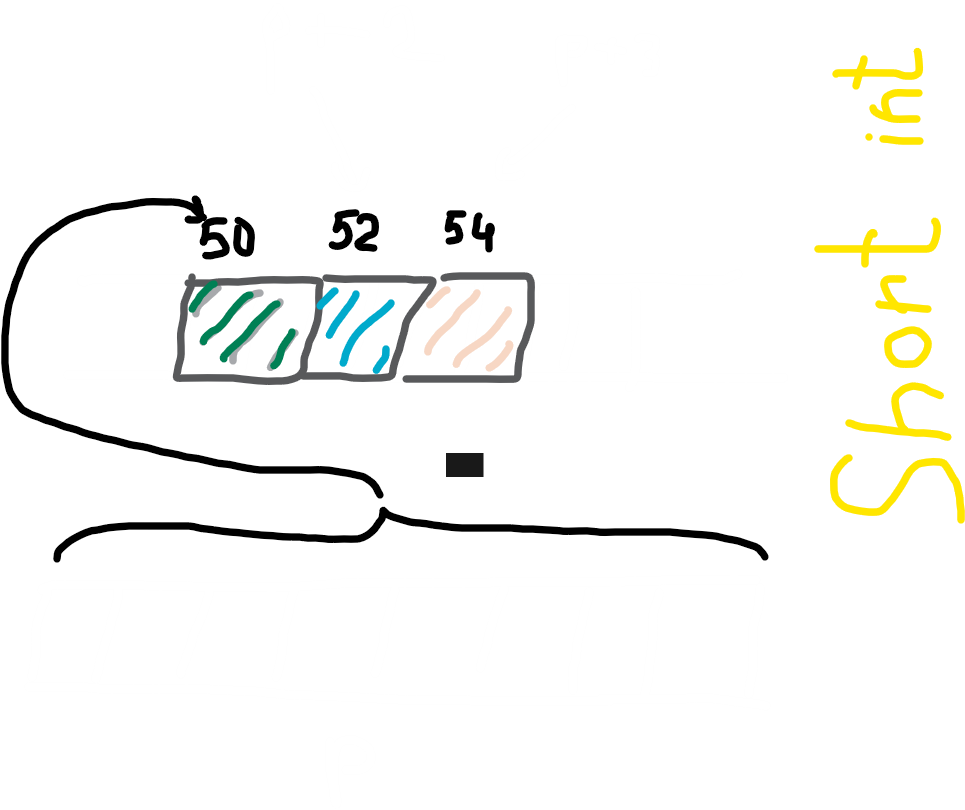 50 52 54
Short int